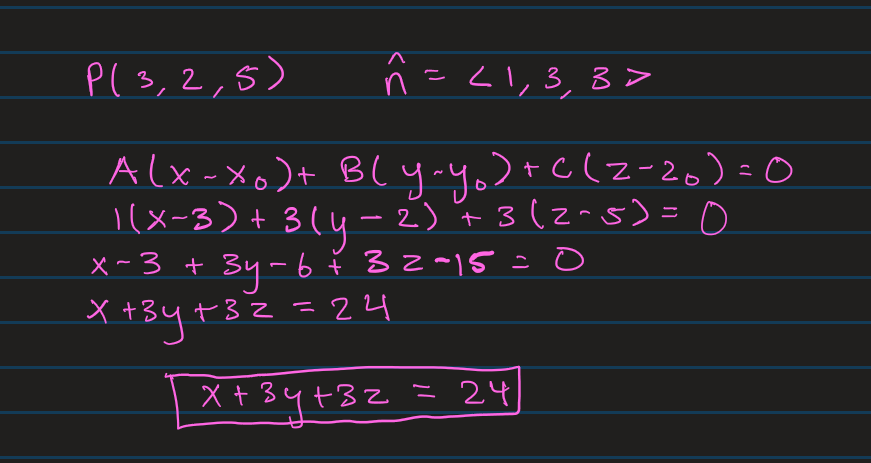 P(3, 2, 5) n̂ = <1, 3, 3>
A(x-x₀) + B(y-y₀) + C(z-z₀) = 0
1(x-3) + 3(y-2) + 3(z-5) = 0
x-3 + 3y-6 + 3z-15 = 0
x+3y+3z = 24
x+3y+3z = 24